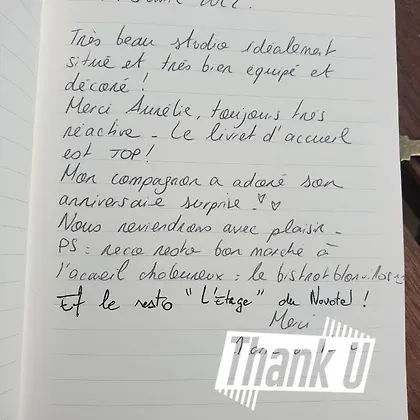 2022.
Très beau studio idéalement
situé et très bien équipé et
décoré !
Merci Aurélie, toujours très
réactive - Le livret d'accueil
est TOP !
Mon compagnon a adoré son
anniversaire surprise ! ♡♡
Nous reviendrons avec plaisir -
PS : reco resto bon marché à
l'accueil chaleureux : le bistrot
Et le resto "L'Étage" du Novotel !
Merci
Thank U